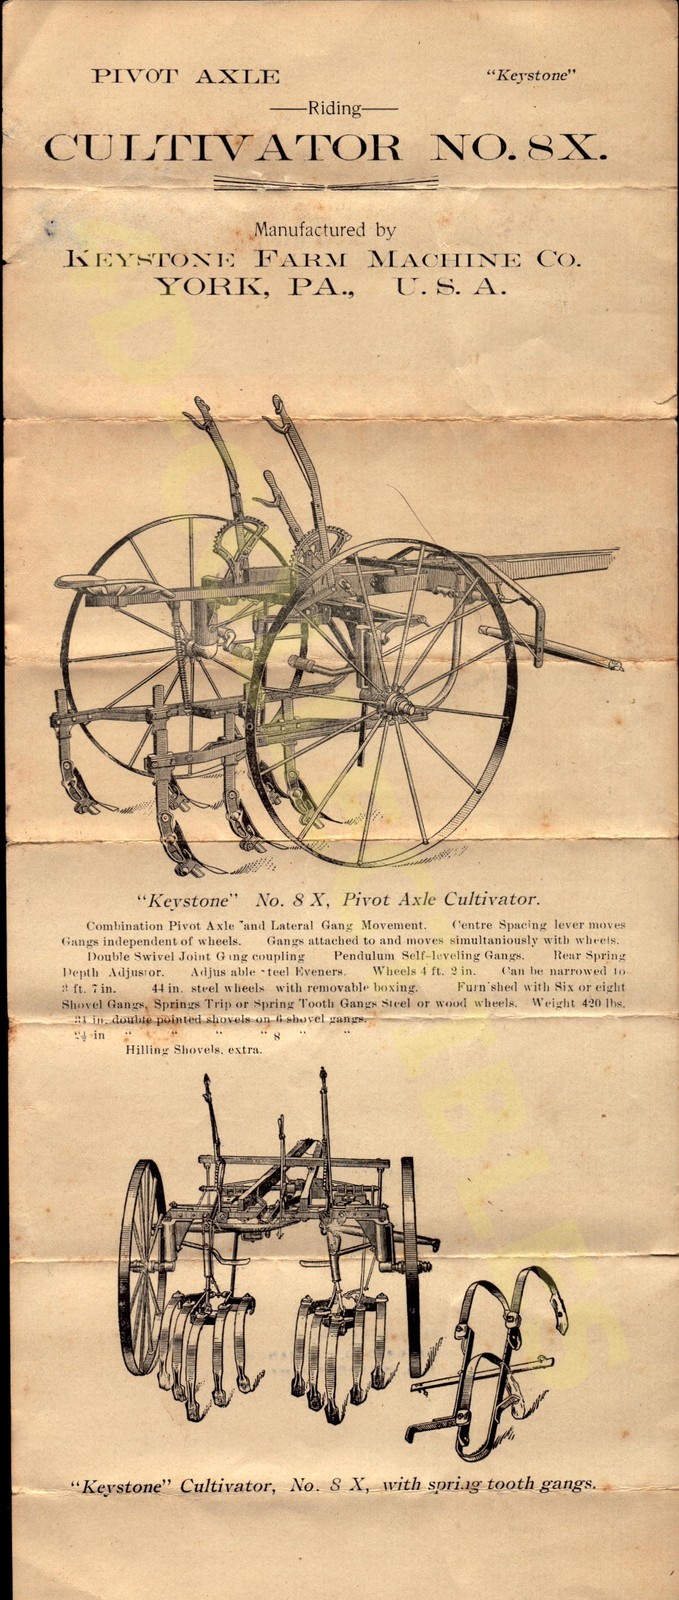 PIVOT AXLE "Keystone"
Riding
CULTIVATOR NO. 8X.
Manufactured by
KEYSTONE FARM MACHINE CO.
YORK, PA., U. S. A.
"Keystone" No. 8 X, Pivot Axle Cultivator.
Combination Pivot Axle and Lateral Gang Movement. Centre Spacing lever moves
Gangs independent of wheels. Gangs attached to and moves simultaniously with wheels.
Double Swivel Joint Gang coupling Pendulum Self-leveling Gangs. Rear Spring
Depth Adjustor. Adjustable steel Eveners. Wheels 4 ft. 2 in. Can be narrowed to
3 ft. 7 in. 44 in. steel wheels with removable boxing. Furnished with Six or eight
Shovel Gangs, Springs Trip or Spring Tooth Gangs Steel or wood wheels. Weight 420 lbs.
in. double pointed shovels on 6 shovel gangs.
2½ in " " " " 8 " "
Hilling Shovels, extra.
"Keystone" Cultivator, No. 8 X, with spring tooth gangs.